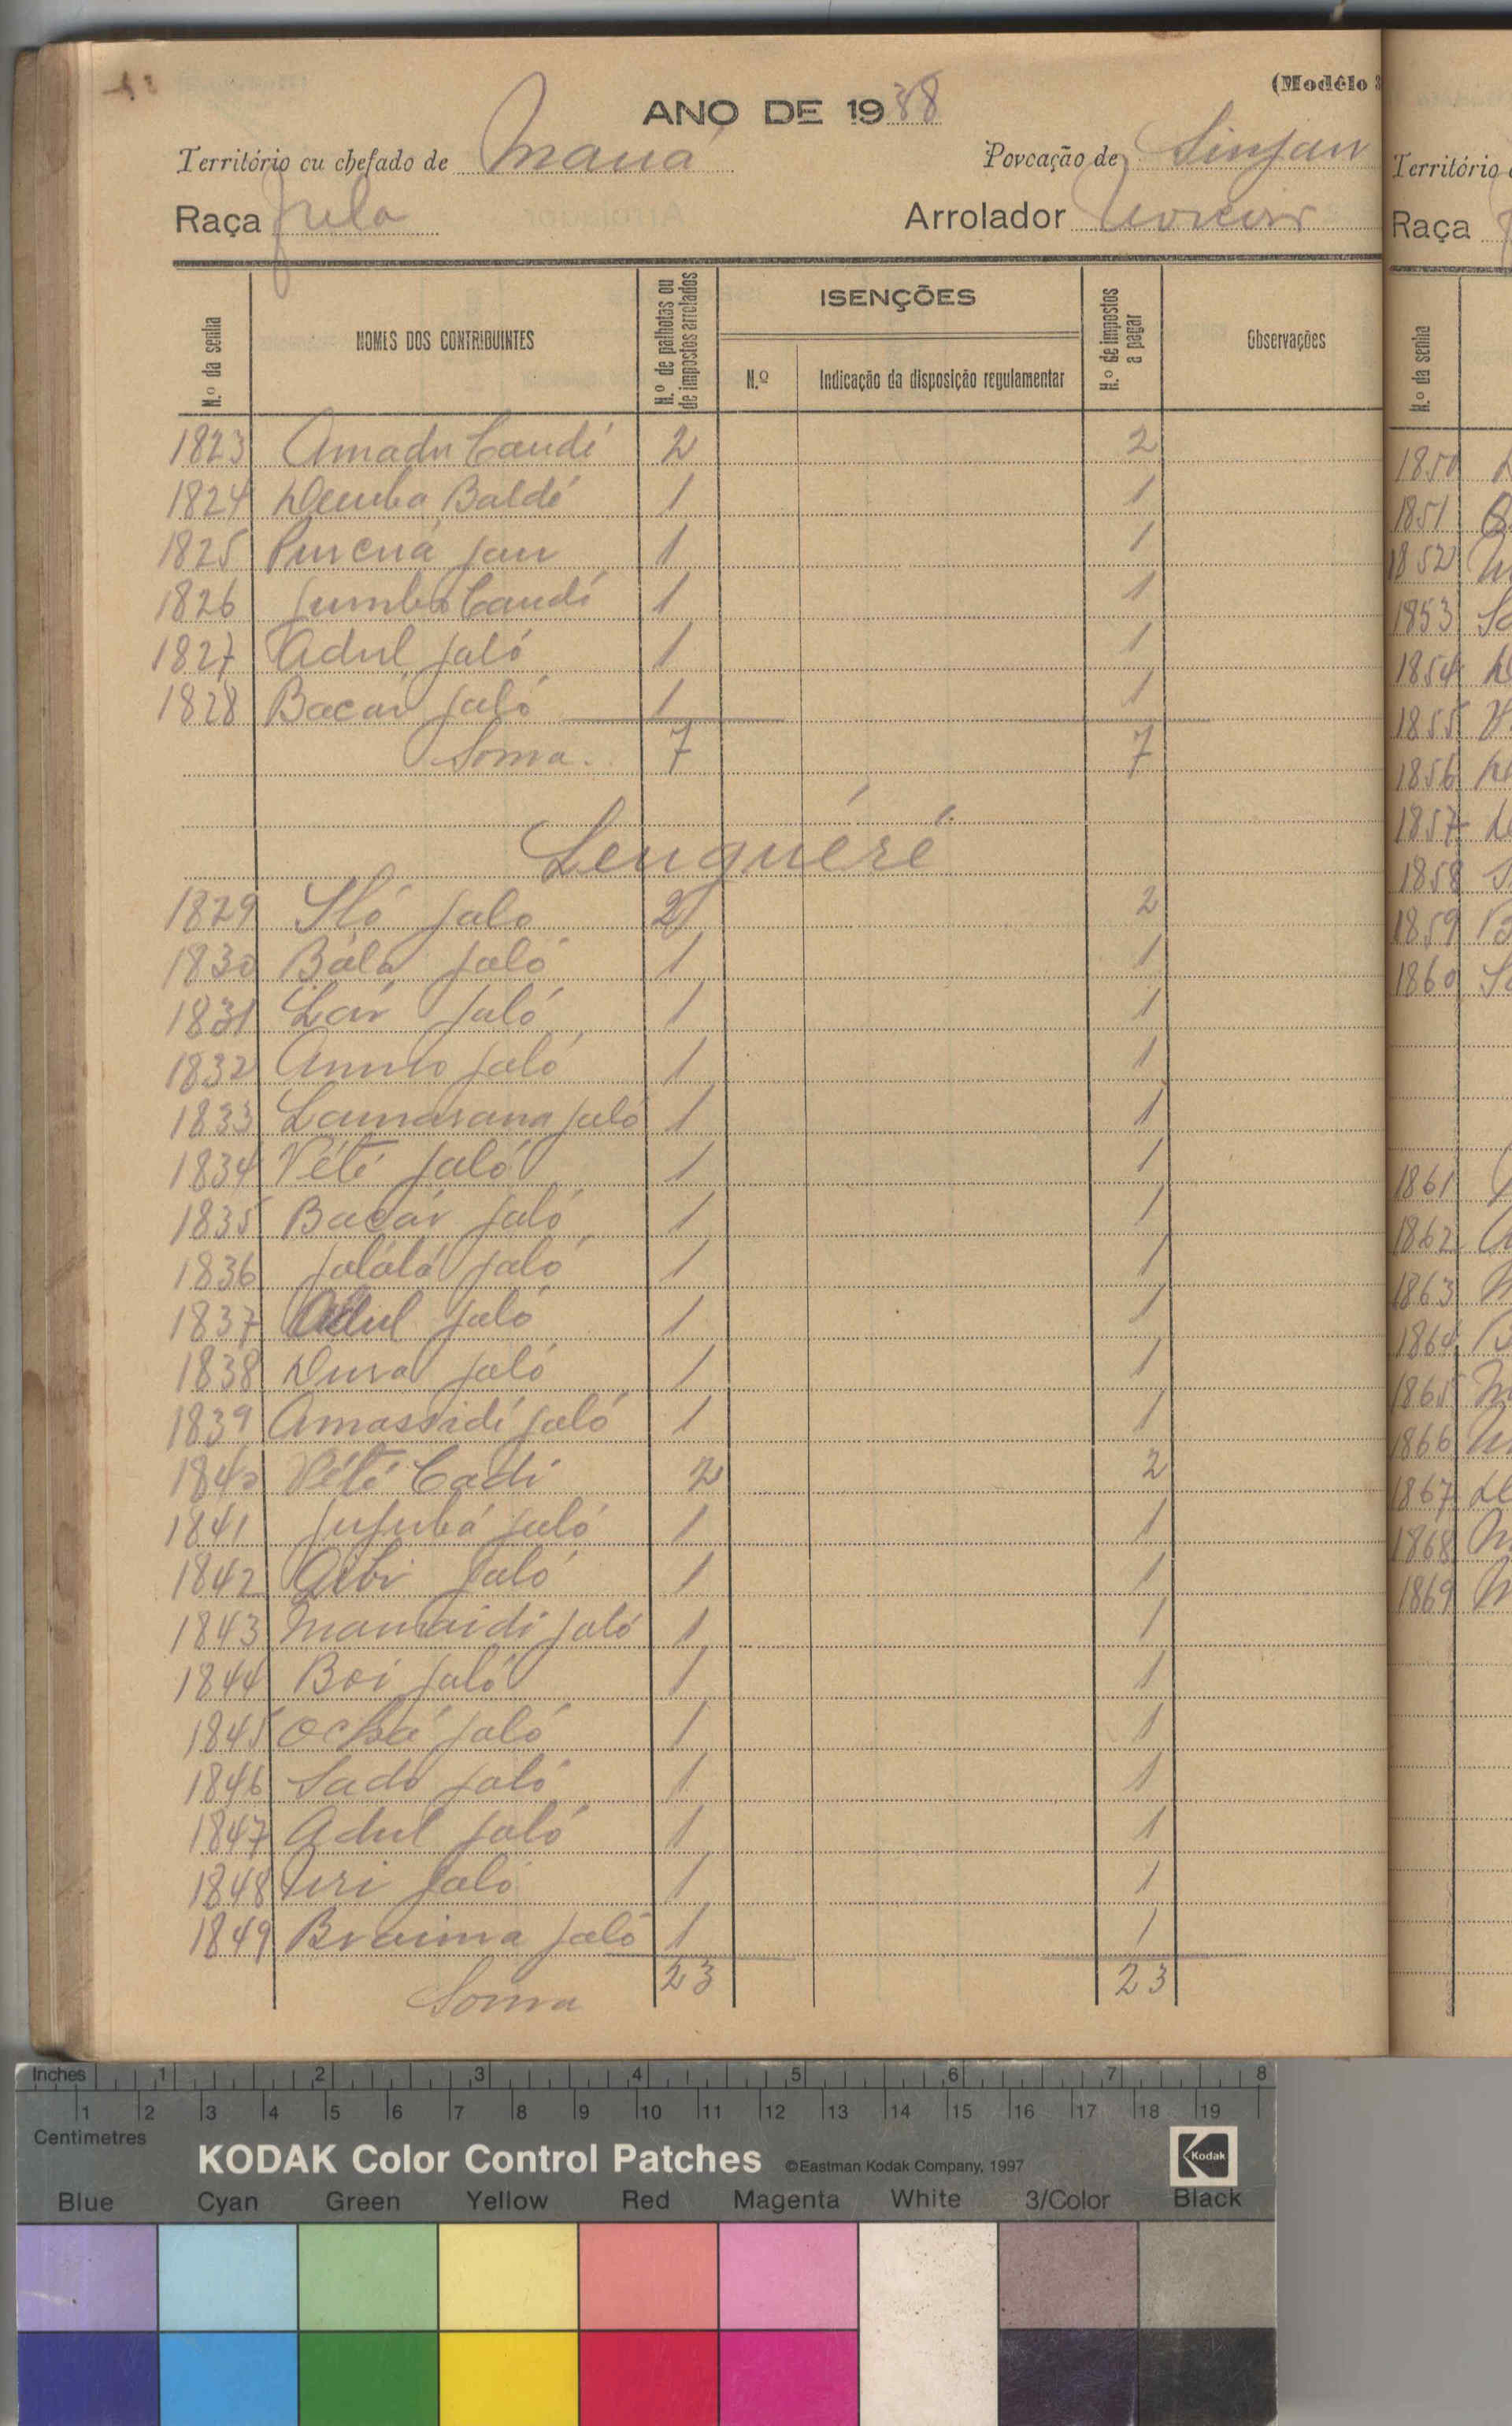 (Modêlo 3
ANO DE 1938
Território ou chefado de Maná Povoação de Sinjan
Raça Fula Arrolador
N.º da senha
NOMES DOS CONTRIBUINTES
N.º de palhotas ou de impostos arrolados
ISENÇÕES
N.º
Indicação da disposição regulamentar
N.º de impostos a pagar
Observações
1823 Amadu Candé 2 2
1824 Demba Baldé 1 1
1825 Jau 1 1
1826 Jumba Candé 1 1
1827 Adul Jaló 1 1
1828 Bacar Jaló 1 1
Soma. 7 7
Lenguéré
1829 Iló Jalo 2 2
1830 Bála Jaló 1 1
1831 Lár Jaló 1 1
1832 Jaló 1 1
1833 Lamarana Jaló 1 1
1834 Vété Jaló 1 1
1835 Bacár Jaló 1 1
1836 Jalálá Jaló 1 1
1837 Adul Jaló 1 1
1838 Dura Jaló 1 1
1839 Amassidi Jaló 1 1
1840 Vété Cadi 2 2
1841 Jujubá Jaló 1 1
1842 Jaló 1 1
1843 Mamaidi Jaló 1 1
1844 Boi Jaló 1 1
1845 Ochá Jaló 1 1
1846 Sado Jaló 1 1
1847 Adul Jaló 1 1
1848 Juri Jaló 1 1
1849 Braima Jaló 1 1
Soma 23 23
Território
Raça
N.º da senha
1850
1851
1852
1853
1854
1855
1856
1857
1858
1859
1860
1861
1862
1863
1864
1865
1866
1867
1868
1869
Inches 1 2 3 4 5 6 7 8
1 2 3 4 5 6 7 8 9 10 11 12 13 14 15 16 17 18 19
Centimetres
KODAK Color Control Patches ©Eastman Kodak Company, 1997 Kodak
Blue Cyan Green Yellow Red Magenta White 3/Color Black